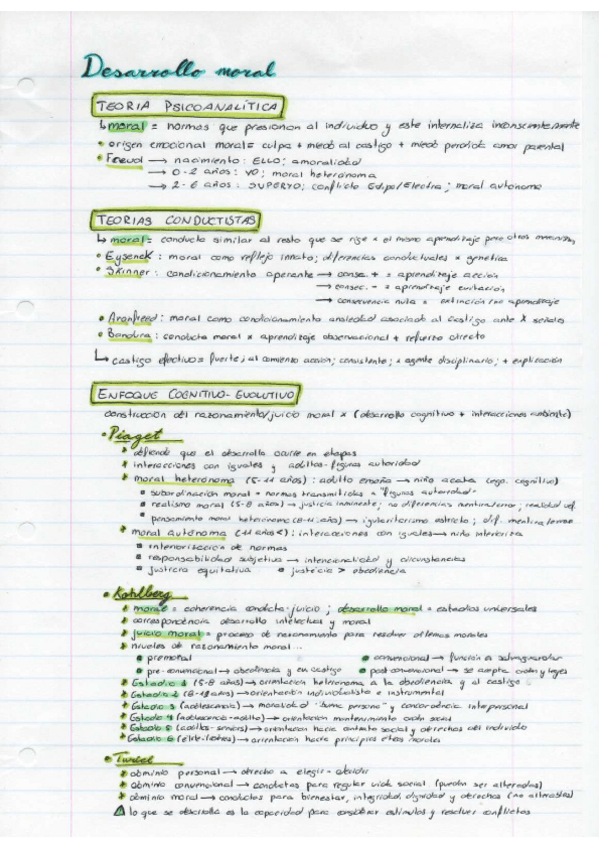 Desarrollo moral
TEORIA PSICOANALÍTICA
↳ moral = normas que presionan al individuo y este internaliza inconscientemente
• origen emocional moral = culpa + miedo al castigo + miedo perdida amor parental
• Freud → nacimiento: ELLO; amoralidad
→ 0-2 años: YO; moral heterónoma
→ 2-6 años: SUPERYO; conflicto Edipo/Electra; moral autónoma
TEORIAS CONDUCTISTAS
↳ moral = conducta similar al resto que se rige x el mismo aprendizaje pero otros
• Eysenck: moral como reflejo innato; diferencias conductuales x genética
• Skinner: condicionamiento operante → consec. + = aprendizaje acción
→ consec. - = aprendizaje evitación
→ consecuencia nula = extinción / no aprendizaje
• Aronfreed: moral como condicionamiento ansiedad asociada al castigo ante X señales
• Bandura: conducta moral x aprendizaje observacional + refuerzo directo
↳ castigo efectivo = fuerte; al comienzo acción; consistente; agente disciplinario; + explicación
ENFOQUE COGNITIVO-EVOLUTIVO
construcción del razonamiento/juicio moral x (desarrollo cognitivo + interacciones ambiente)
• Piaget
* defiende que el desarrollo ocurre en etapas
* interacciones con iguales y adultos-figuras autoridad
* moral heterónoma (5-11 años): adulto enseña → niño acata (ego. cognitivo)
subordinación moral = normas transmitidas x "figuras autoridad"
realismo moral (5-8 años) → justicia inminente; no diferencias mentira/error;
pensamiento moral heterónomo (8-11 años) → igualitarismo estricto; dif. mentira/error
* moral autónoma (11 años <): interacciones con iguales → niño interioriza
interiorización de normas
responsabilidad subjetiva → intencionalidad y circunstancias
justicia equitativa justicia > obediencia
• Kohlberg
* moral = coherencia conducta-juicio; desarrollo moral = estadios universales
* correspondencia desarrollo intelectual y moral
* juicio moral = proceso de razonamiento para resolver dilemas morales
* niveles de razonamiento moral...
premoral convencional → función a salvaguardar
pre-convencional → obediencia y en castigo post convencional → se acepta orden y leyes
* Estadio 1 (5-8 años) → orientación heterónoma a la obediencia y al castigo
* Estadio 2 (8-14 años) → orientación individualista e instrumental
* Estadio 3 (adolescencia) → moralidad "buena persona" y concordancia interpersonal
* Estadio 4 (adolescencia-adulto) → orientación mantenimiento orden social
* Estadio 5 (adultos-seniors) → orientación hacia contrato social y derechos del individuo
* Estadio 6 → orientación hacia principios éticos morales
• Turiel
* dominio personal → derecho a elegir-decidir
* dominio convencional → conductas para regular vida social (pueden ser alteradas)
* dominio moral → conductas para bienestar, integridad, dignidad y derechos (no alterables)
lo que se desarrolla es la capacidad para considerar estímulos y resolver conflictos